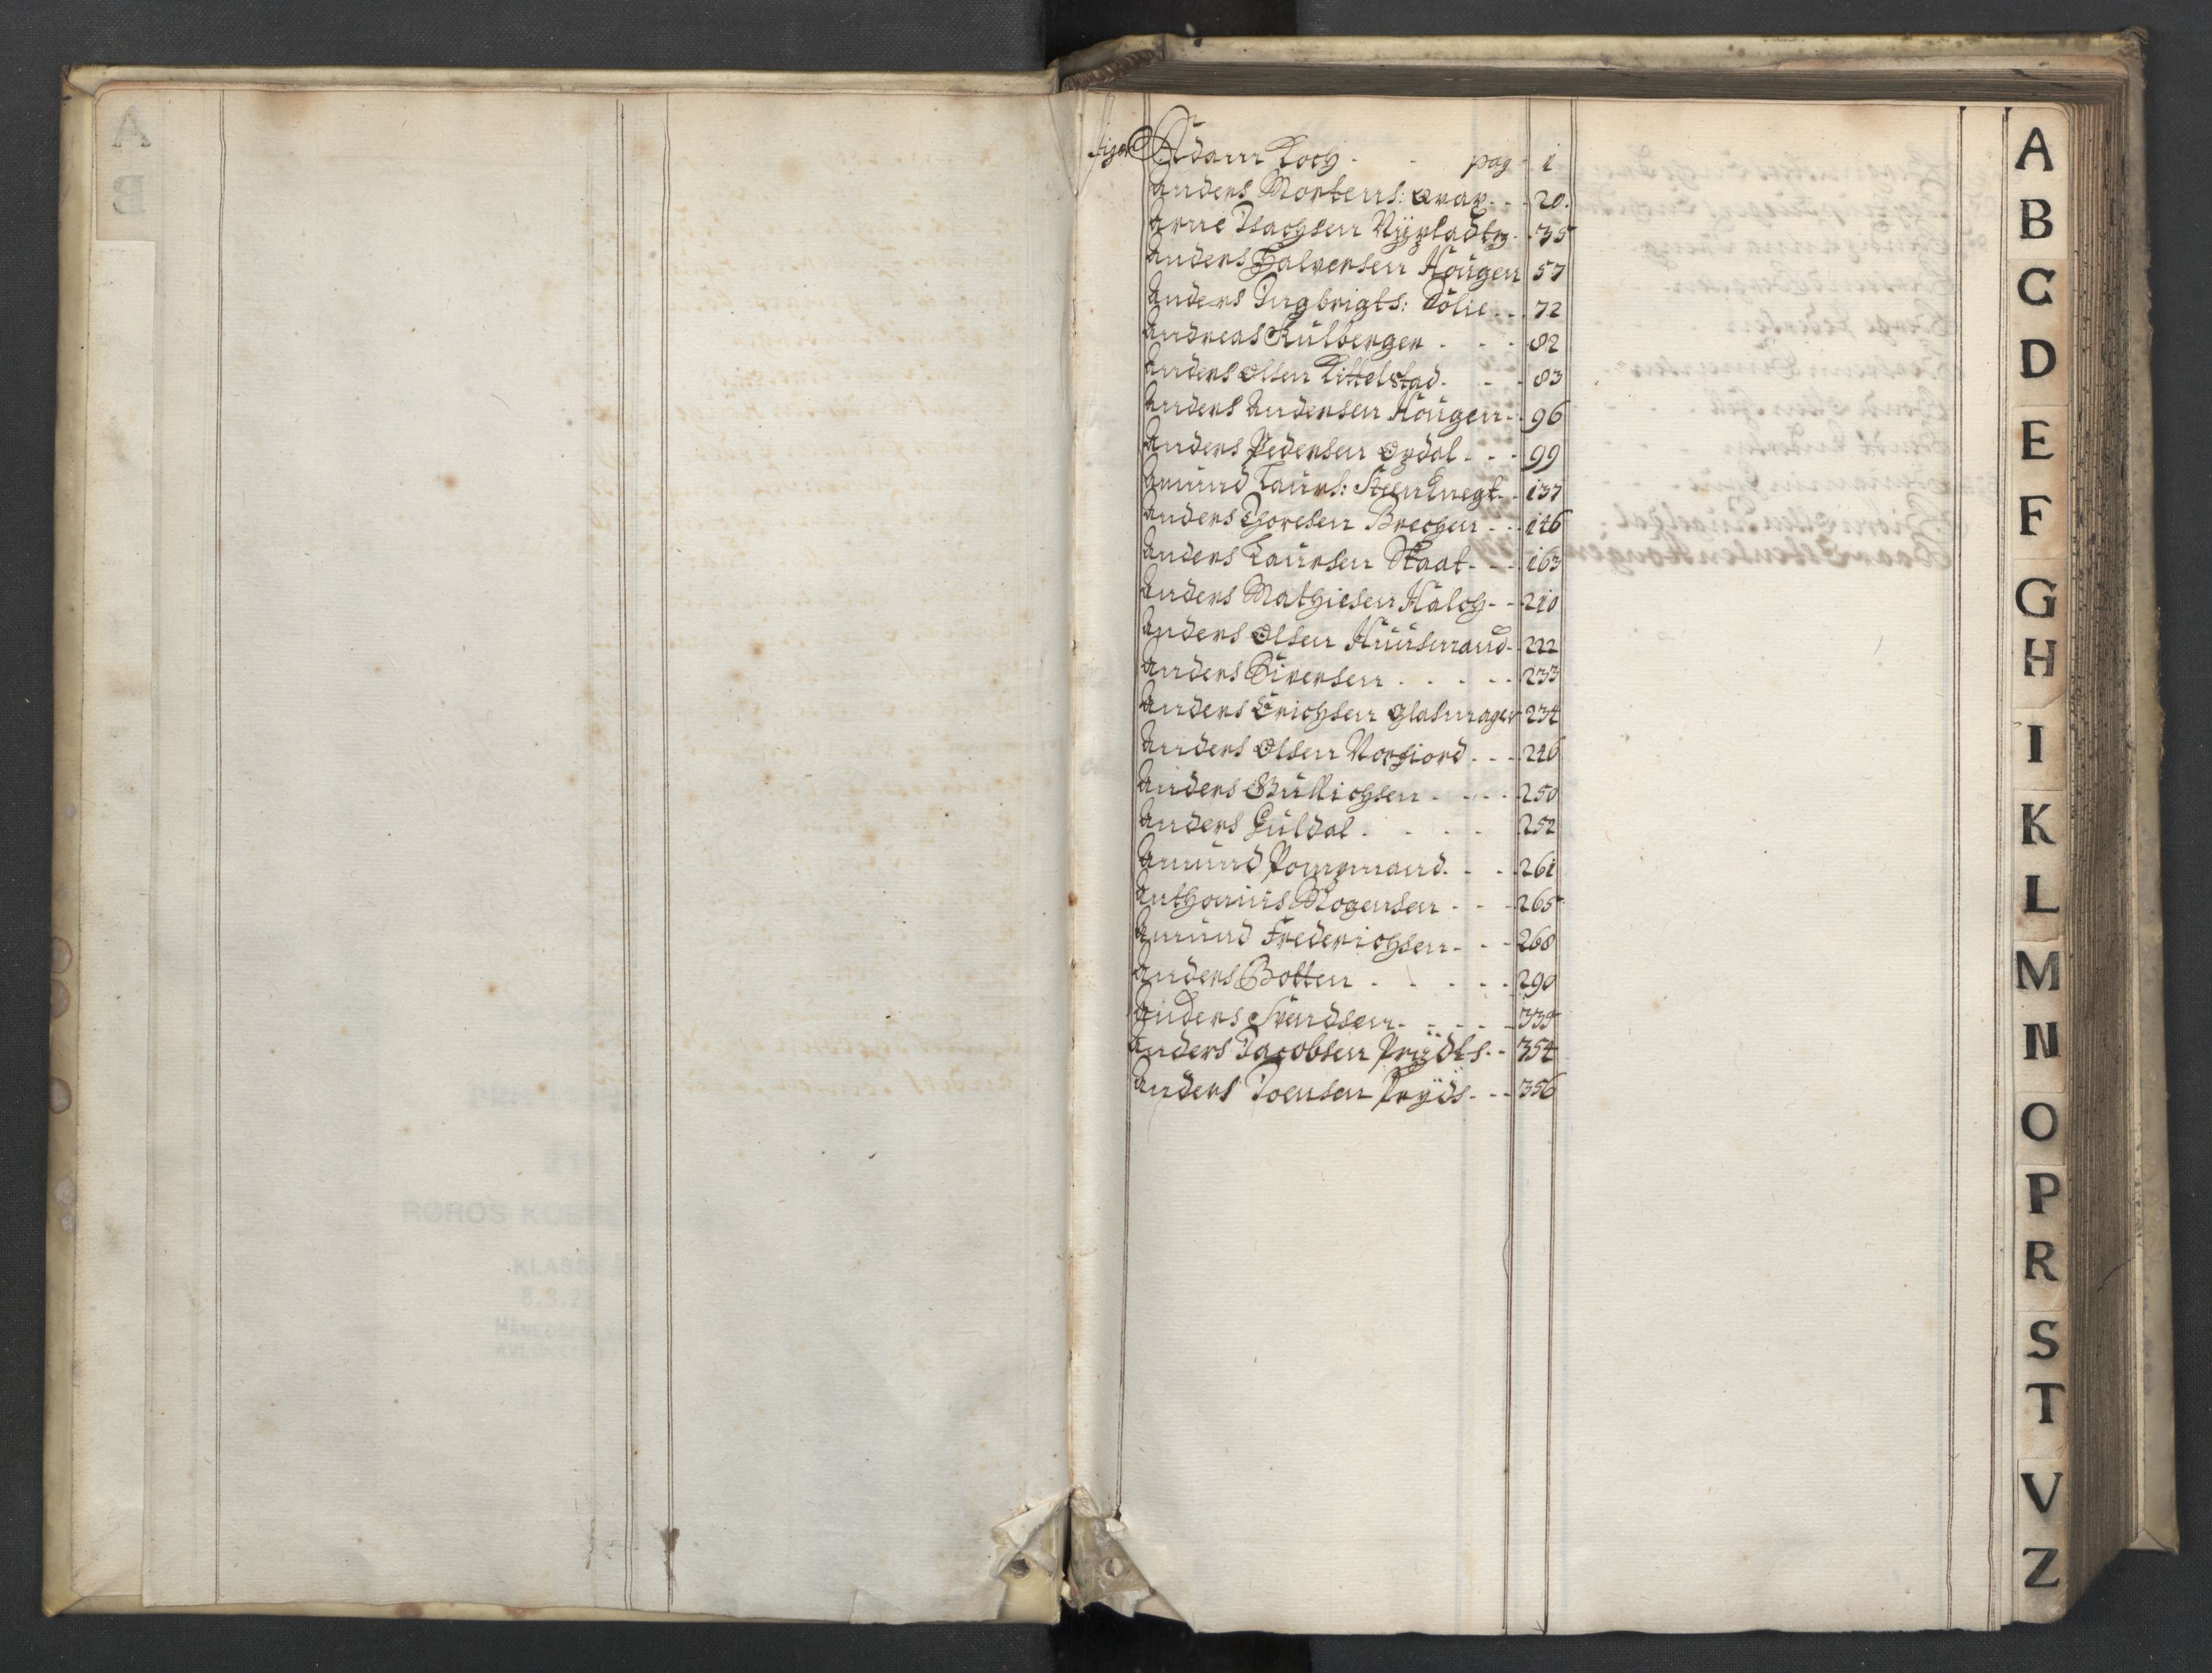 A
B
Adam Koch - - pag - 1
Anders Mortens: Qvar - - 20.
Arne Isachsen Nÿpladtz - 35
Anders Halversen Hougen 57
Anders Ingbrigts: Dölie - - 72
Andreas Külberger - - - 82
Anders Olsen Kittelstad - - - 83
Anders Andersen Hougen - - 96
Anders Pedersen Opdal - - - 99
Amund Laurs: Steenknegt - - 137
Anders Thoresen Brechen - - - 146
Anders Laursen Staat - - - 163
Anders Mathiesen Halch - - 210
Anders Olsen Huusmand - - 222
Anders Siversen - - - - - 233
Anders Erichsen Glasmager 234
Anders Olsen Norfiord - - - 246
Anders Gullichsen - - - - 250
Anders Guldal - - - - 252
Amund Pompmand - - - 261
Anthonius Mogensen - - - 265
Amund Frederichsen - - - 268
Anders Botten - - - - - 290
Anders Svendsen - - - - - 335
Anders Jacobsen Prÿdts - - 354
Anders Joensen Prÿds - - - 356
A
B
C
D
E
F
G
H
I
K
L
M
N
O
P
R
S
T
V
Z